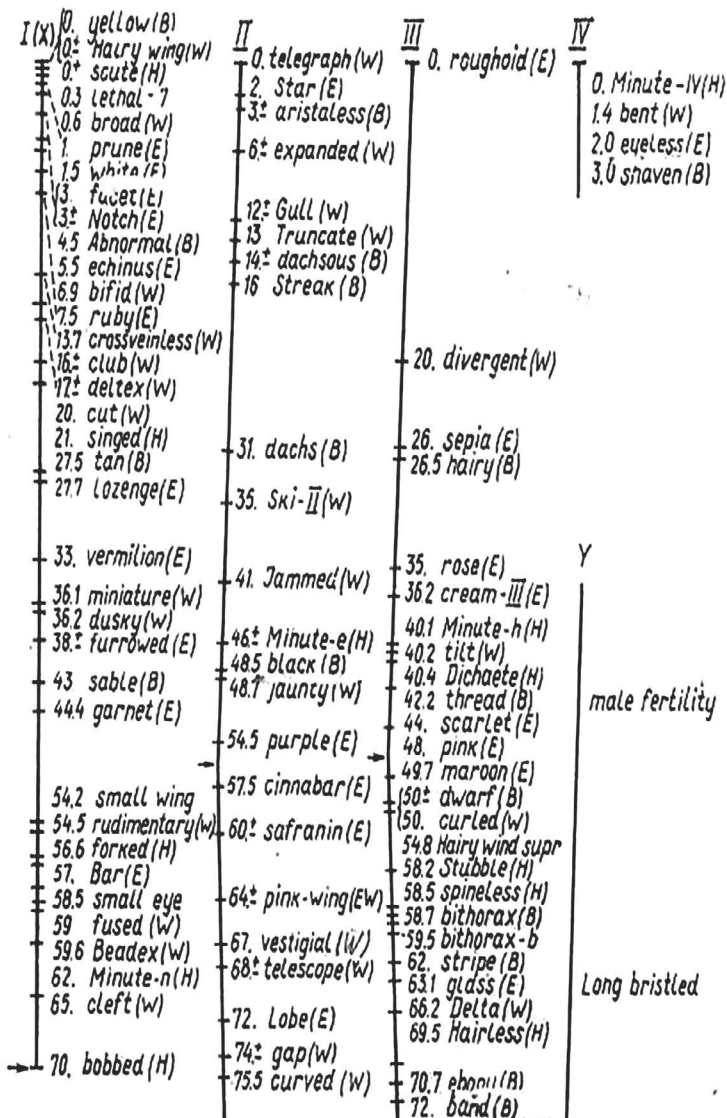 I(X)
0. yellow(B)
0± Hairy wing(W)
0± scute(H)
0.3 lethal-7
0.6 broad(W)
1. prune(E)
1.5 white(E)
3. facet(E)
3± Notch(E)
4.5 Abnormal(B)
5.5 echinus(E)
6.9 bifid(W)
7.5 ruby(E)
13.7 crossveinless(W)
16± club(W)
17± deltex(W)
20. cut(W)
21. singed(H)
27.5 tan(B)
27.7 lozenge(E)
33. vermilion(E)
36.1 miniature(W)
36.2 dusky(W)
38± furrowed(E)
43 sable(B)
44.4 garnet(E)
54.2 small wing
54.5 rudimentary(W)
56.6 forked(H)
57. Bar(E)
58.5 small eye
59 fused(W)
59.6 Beadex(W)
62. Minute-n(H)
65. cleft(W)
70. bobbed(H)
II
0. telegraph(W)
2. Star(E)
3± aristaless(B)
6± expanded(W)
12± Gull(W)
13 Truncate(W)
14± dachsous(B)
16 Streak(B)
31. dachs(B)
35. Ski-II(W)
41. Jammed(W)
46± Minute-e(H)
48.5 black(B)
48.7 jaunty(W)
54.5 purple(E)
57.5 cinnabar(E)
60± safranin(E)
64± pink-wing(EW)
67. vestigial(W)
68± telescope(W)
72. Lobe(E)
74± gap(W)
75.5 curved(W)
III
0. roughoid(E)
20. divergent(W)
26. sepia(E)
26.5 hairy(B)
35. rose(E)
36.2 cream-III(E)
40.1 Minute-h(H)
40.2 tilt(W)
40.4 Dichaete(H)
42.2 thread(B)
44. scarlet(E)
48. pink(E)
49.7 maroon(E)
50± dwarf(B)
50. curled(W)
54.8 Hairy wind supr
58.2 Stubble(H)
58.5 spineless(H)
58.7 bithorax(B)
59.5 bithorax-b
62. stripe(B)
63.1 glass(E)
66.2 Delta(W)
69.5 Hairless(H)
70.7 ebony(B)
72. band(B)
IV
0. Minute-IV(H)
1.4 bent(W)
2.0 eyeless(E)
3.0 shaven(B)
Y
male fertility
Long bristled